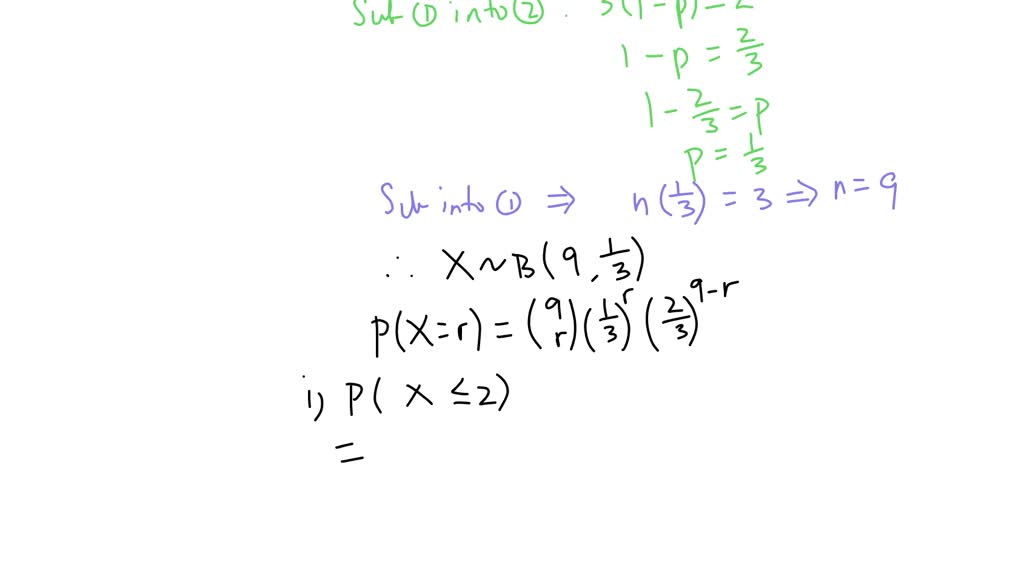 Sub ① into ② : 3(1-p)=2
1-p = 2/3
1 - 2/3 = p
p = 1/3
Sub into ① ⇒ n(1/3) = 3 ⇒ n = 9
∴ X ~ B(9, 1/3)
P(X=r) = (9 r)(1/3)^r (2/3)^9-r
i) P( X ≤ 2)
=